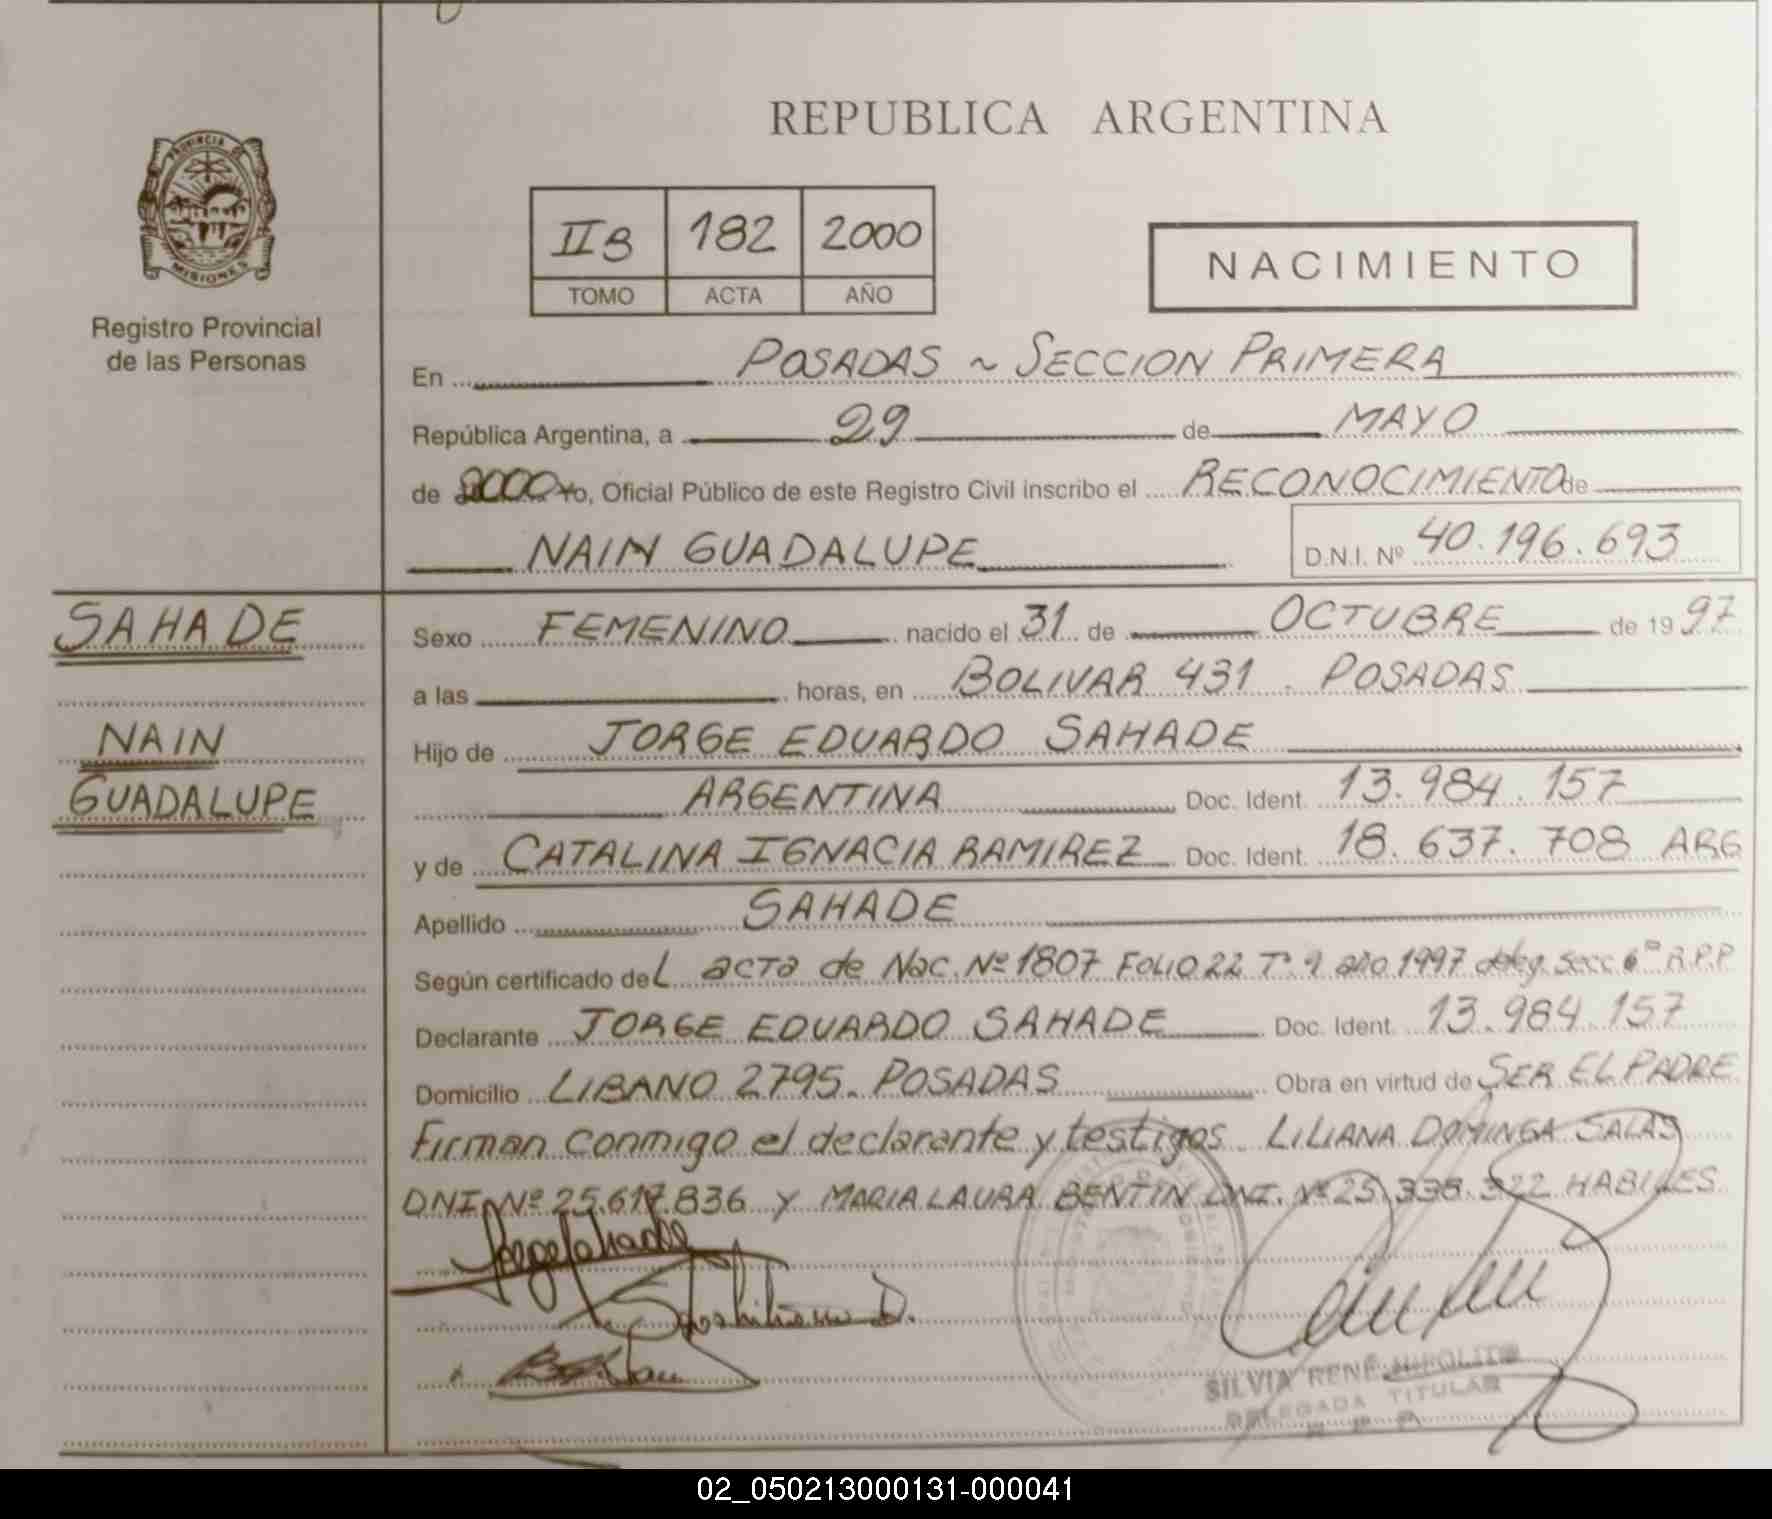 REPUBLICA ARGENTINA
PROVINCIA DE
MISIONES
Registro Provincial
de las Personas
IIB 182 2000
TOMO ACTA AÑO
NACIMIENTO
En POSADAS ~ SECCION PRIMERA
República Argentina, a 29 de MAYO
de 2000 Yo, Oficial Público de este Registro Civil inscribo el RECONOCIMIENTO de
NAIN GUADALUPE D.N.I. Nº 40.196.693
SAHADE
NAIN
GUADALUPE
Sexo FEMENINO nacido el 31 de OCTUBRE de 1997
a las horas, en BOLIVAR 431 . POSADAS
Hijo de JORGE EDUARDO SAHADE
ARGENTINA Doc. Ident. 13.984.157
y de CATALINA IGNACIA RAMIREZ Doc. Ident. 18.637.708 ARG
Apellido SAHADE
Según certificado del acta de Nac. Nº 1807 FOLIO 22 Tº 9 año 1997 deleg. secc 6ª R.P.P
Declarante JORGE EDUARDO SAHADE Doc. Ident. 13.984.157
Domicilio LIBANO 2795. POSADAS Obra en virtud de SER EL PADRE
Firman conmigo el declarante y testigos LILIANA DOMINGA SALAS
DNI Nº 25.617.836 Y MARIA LAURA BENTIN DNI. Nº 25.338.322 HABILES
SILVIA RENÉ HIPOLITO
DELEGADA TITULAR
R P P
02_050213000131-000041